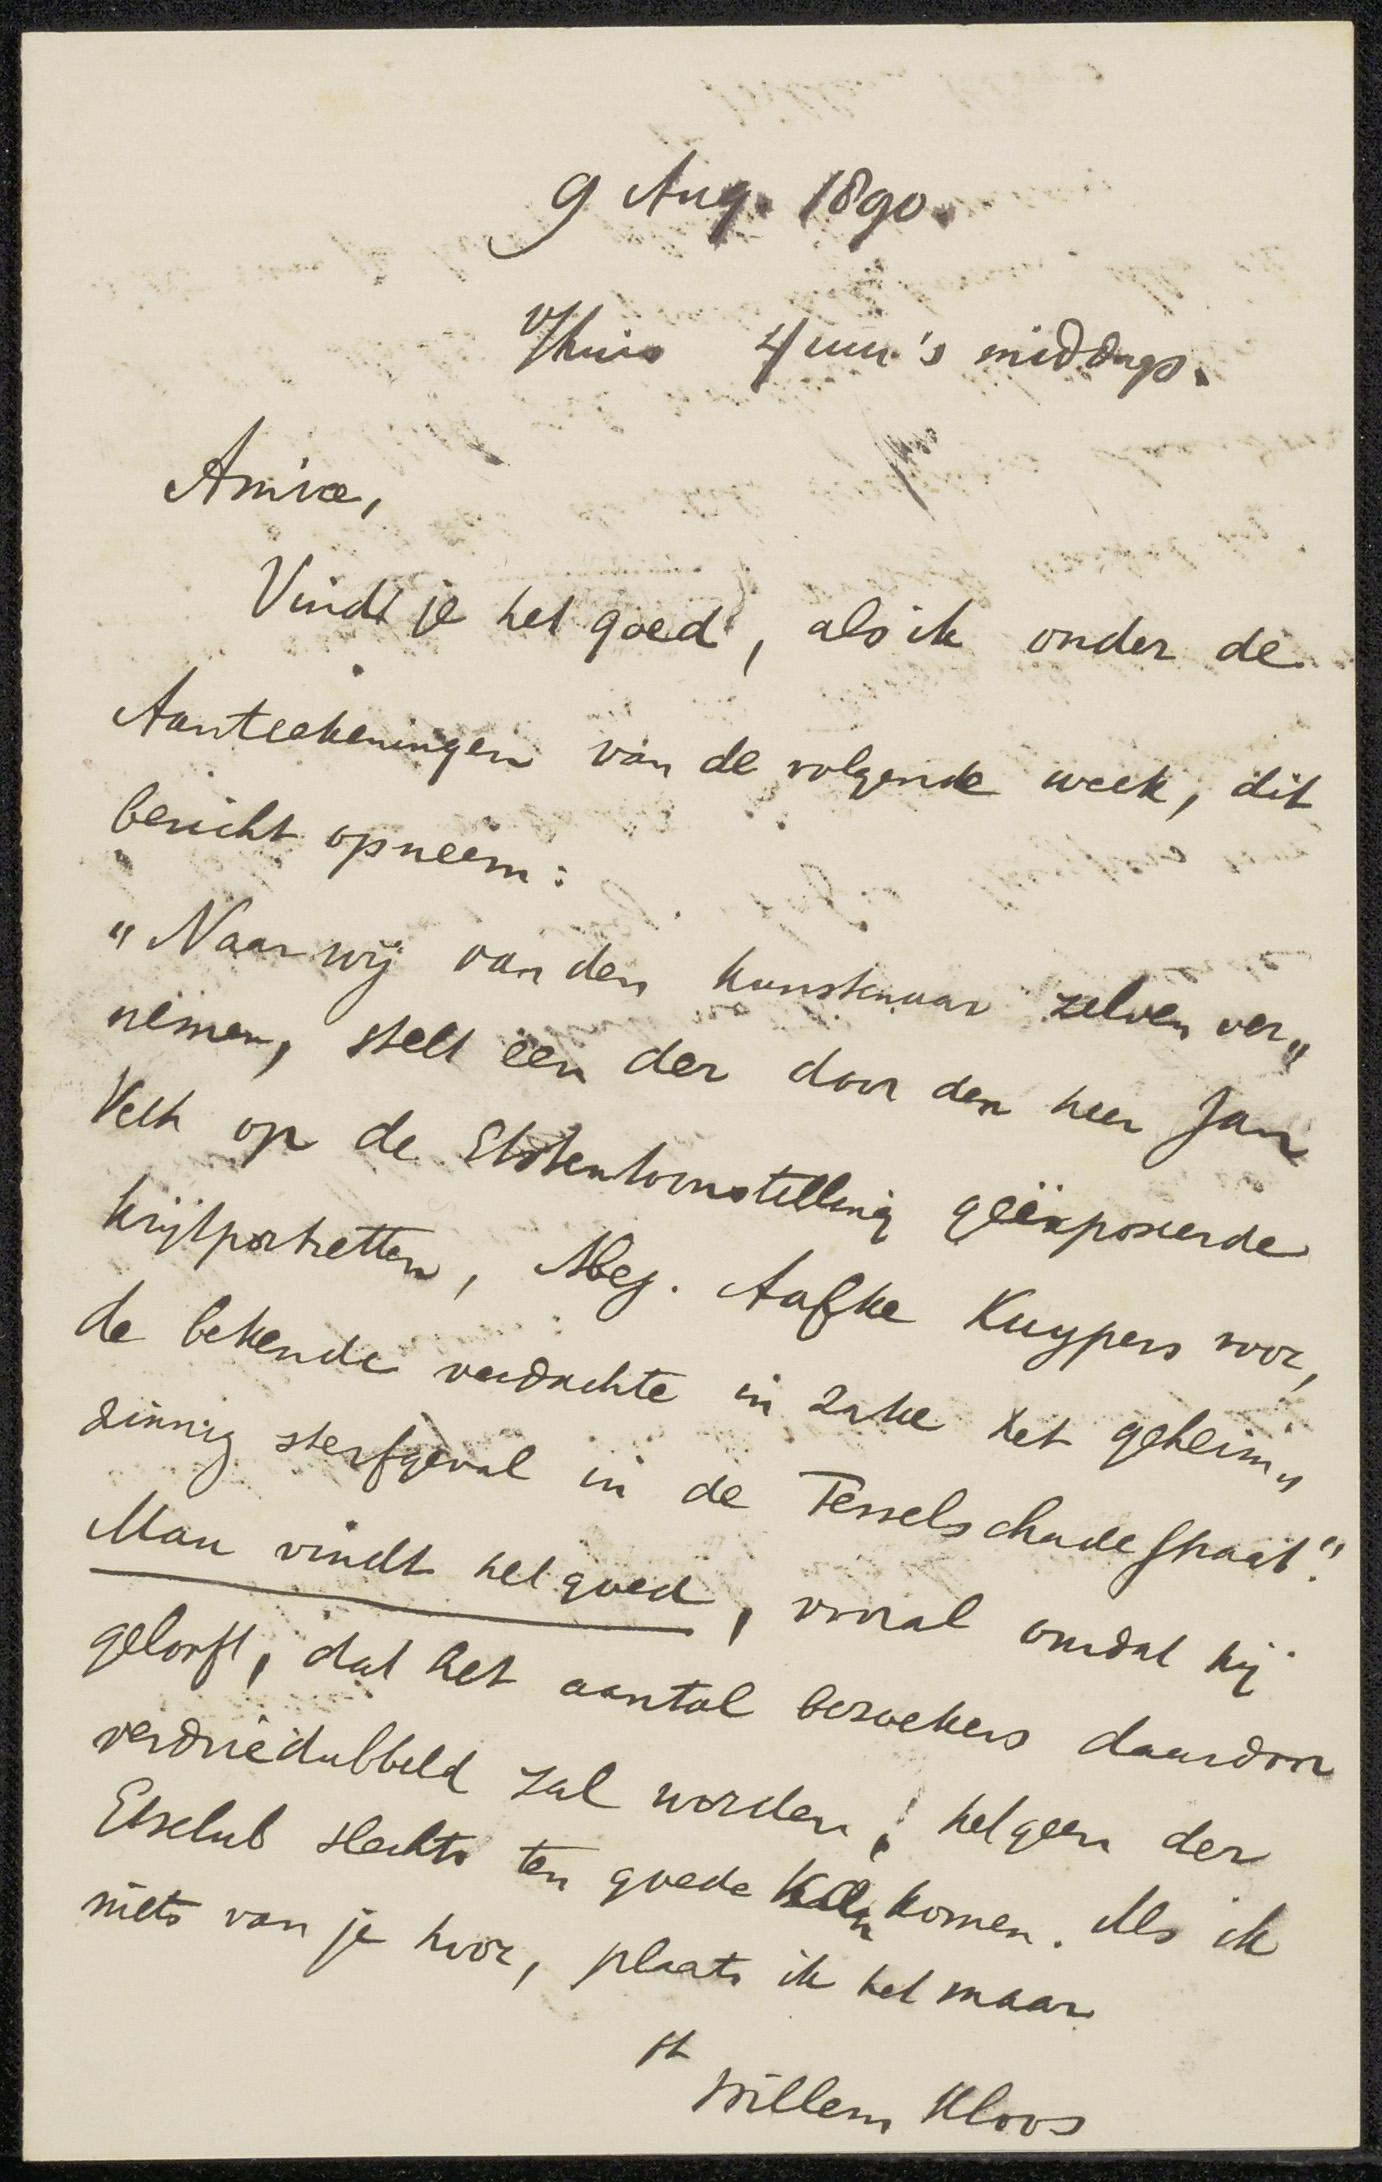 9 Aug. 1890.
4 uur 's middags.
Amice,
Vindt je het goed, als ik onder de
Aanteekeningen van de volgende week, dit
bericht opneem:
"Naar wij van den kunstenaar zelven ver„
nemen, stelt een der door den heer Jan
Veth op de Etstentoonstelling geëxposeerde
krijtportretten, Mej. Aafke Kuypers voor,
de bekende verdachte in zake het geheim„
zinnig sterfgeval in de Tesselschadestraat."
Mau vindt het goed, vooral omdat hij
gelooft, dat het aantal bezoekers daardoor
verdriedubbeld zal worden, hetgeen der
Etsclub slechts ten goede kan komen. Als ik
niets van je hoor, plaats ik het maar
Willem Kloos